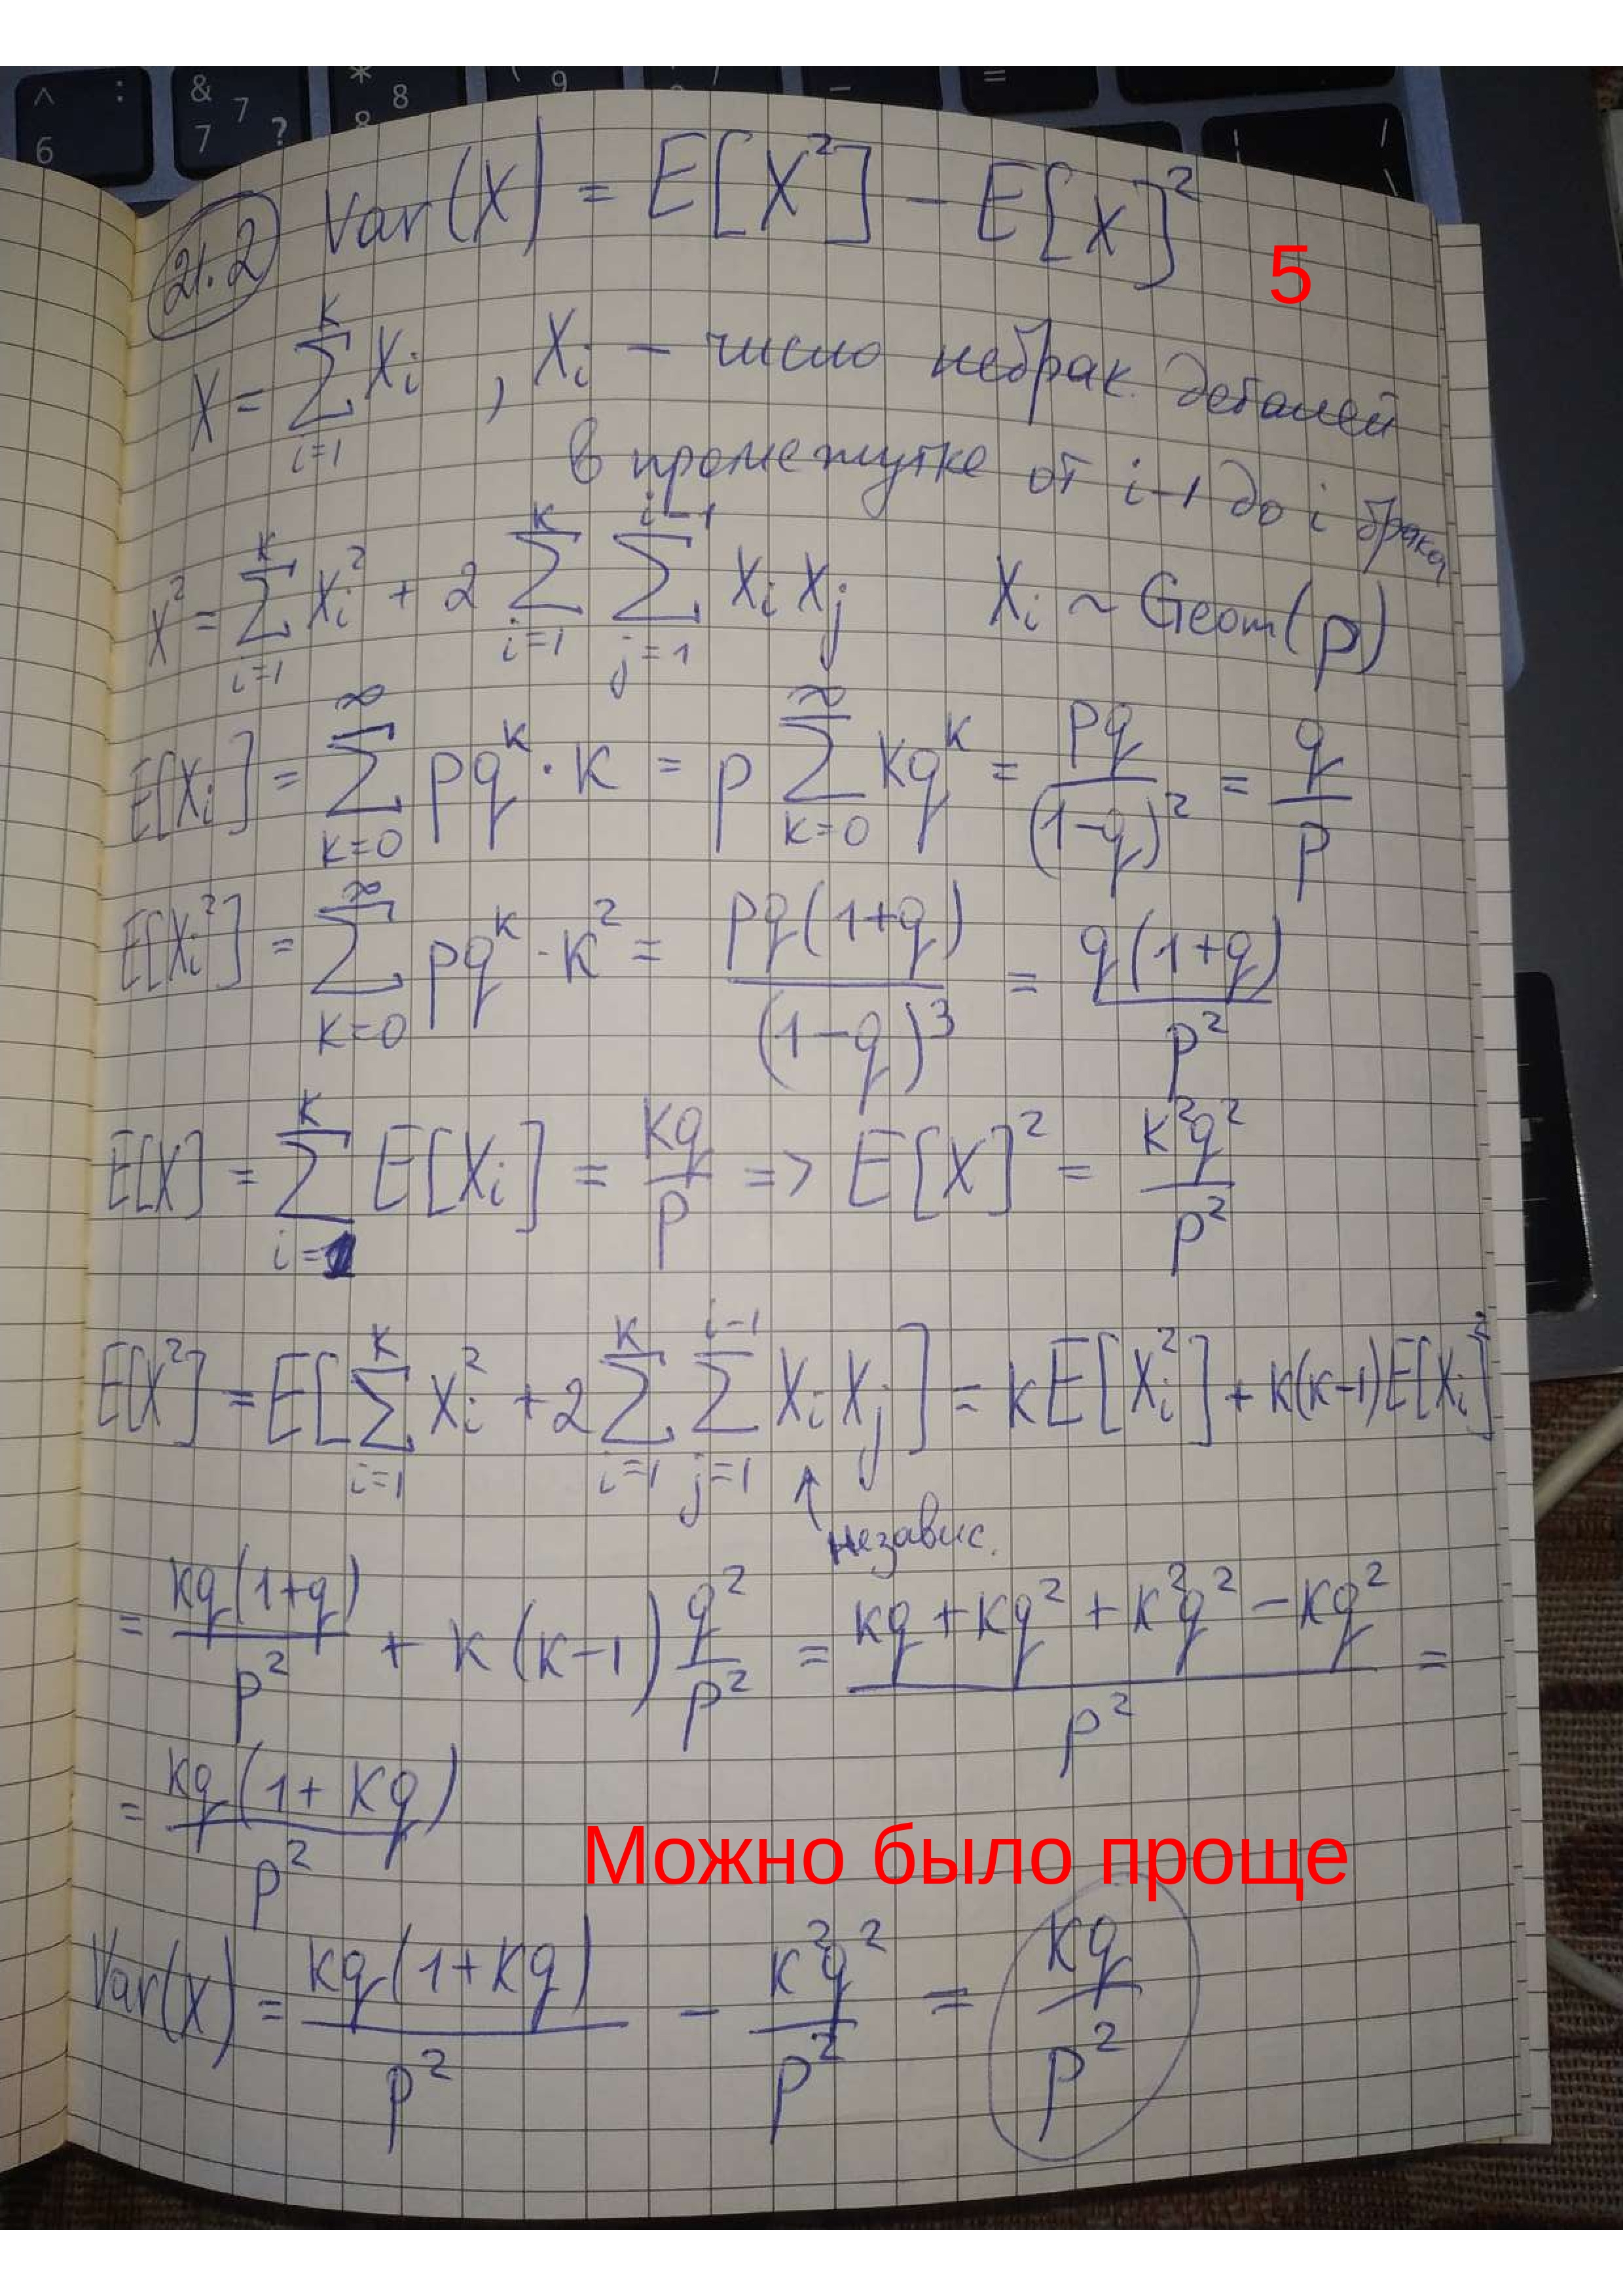 21.2 Var(X) = E[X²] - E[X]²
5
X = \sum_{i=1}^{k} X_i , X_i - число небрак. деталей
в промежутке от i-1 до i брака
X² = \sum_{i=1}^{k} X_i² + 2 \sum_{i=1}^{k} \sum_{j=1}^{i-1} X_i X_j X_i ~ Geom(p)
E[X_i] = \sum_{k=0}^{∞} pq^k · k = p \sum_{k=0}^{∞} kq^k = \frac{pq}{(1-q)²} = \frac{q}{p}
E[X_i²] = \sum_{k=0}^{∞} pq^k · k² = \frac{pq(1+q)}{(1-q)³} = \frac{q(1+q)}{p²}
E[X] = \sum_{i=1}^{k} E[X_i] = \frac{kq}{p} => E[X]² = \frac{k²q²}{p²}
E[X²] = E[\sum_{i=1}^{k} X_i² + 2 \sum_{i=1}^{k} \sum_{j=1}^{i-1} X_i X_j] = kE[X_i²] + k(k-1)E[X_i]²
↑ независ.
= \frac{kq(1+q)}{p²} + k(k-1) \frac{q²}{p²} = \frac{kq + kq² + k²q² - kq²}{p²} =
= \frac{kq(1+kq)}{p²}
Можно было проще
Var(X) = \frac{kq(1+kq)}{p²} - \frac{k²q²}{p²} = \frac{kq}{p²}